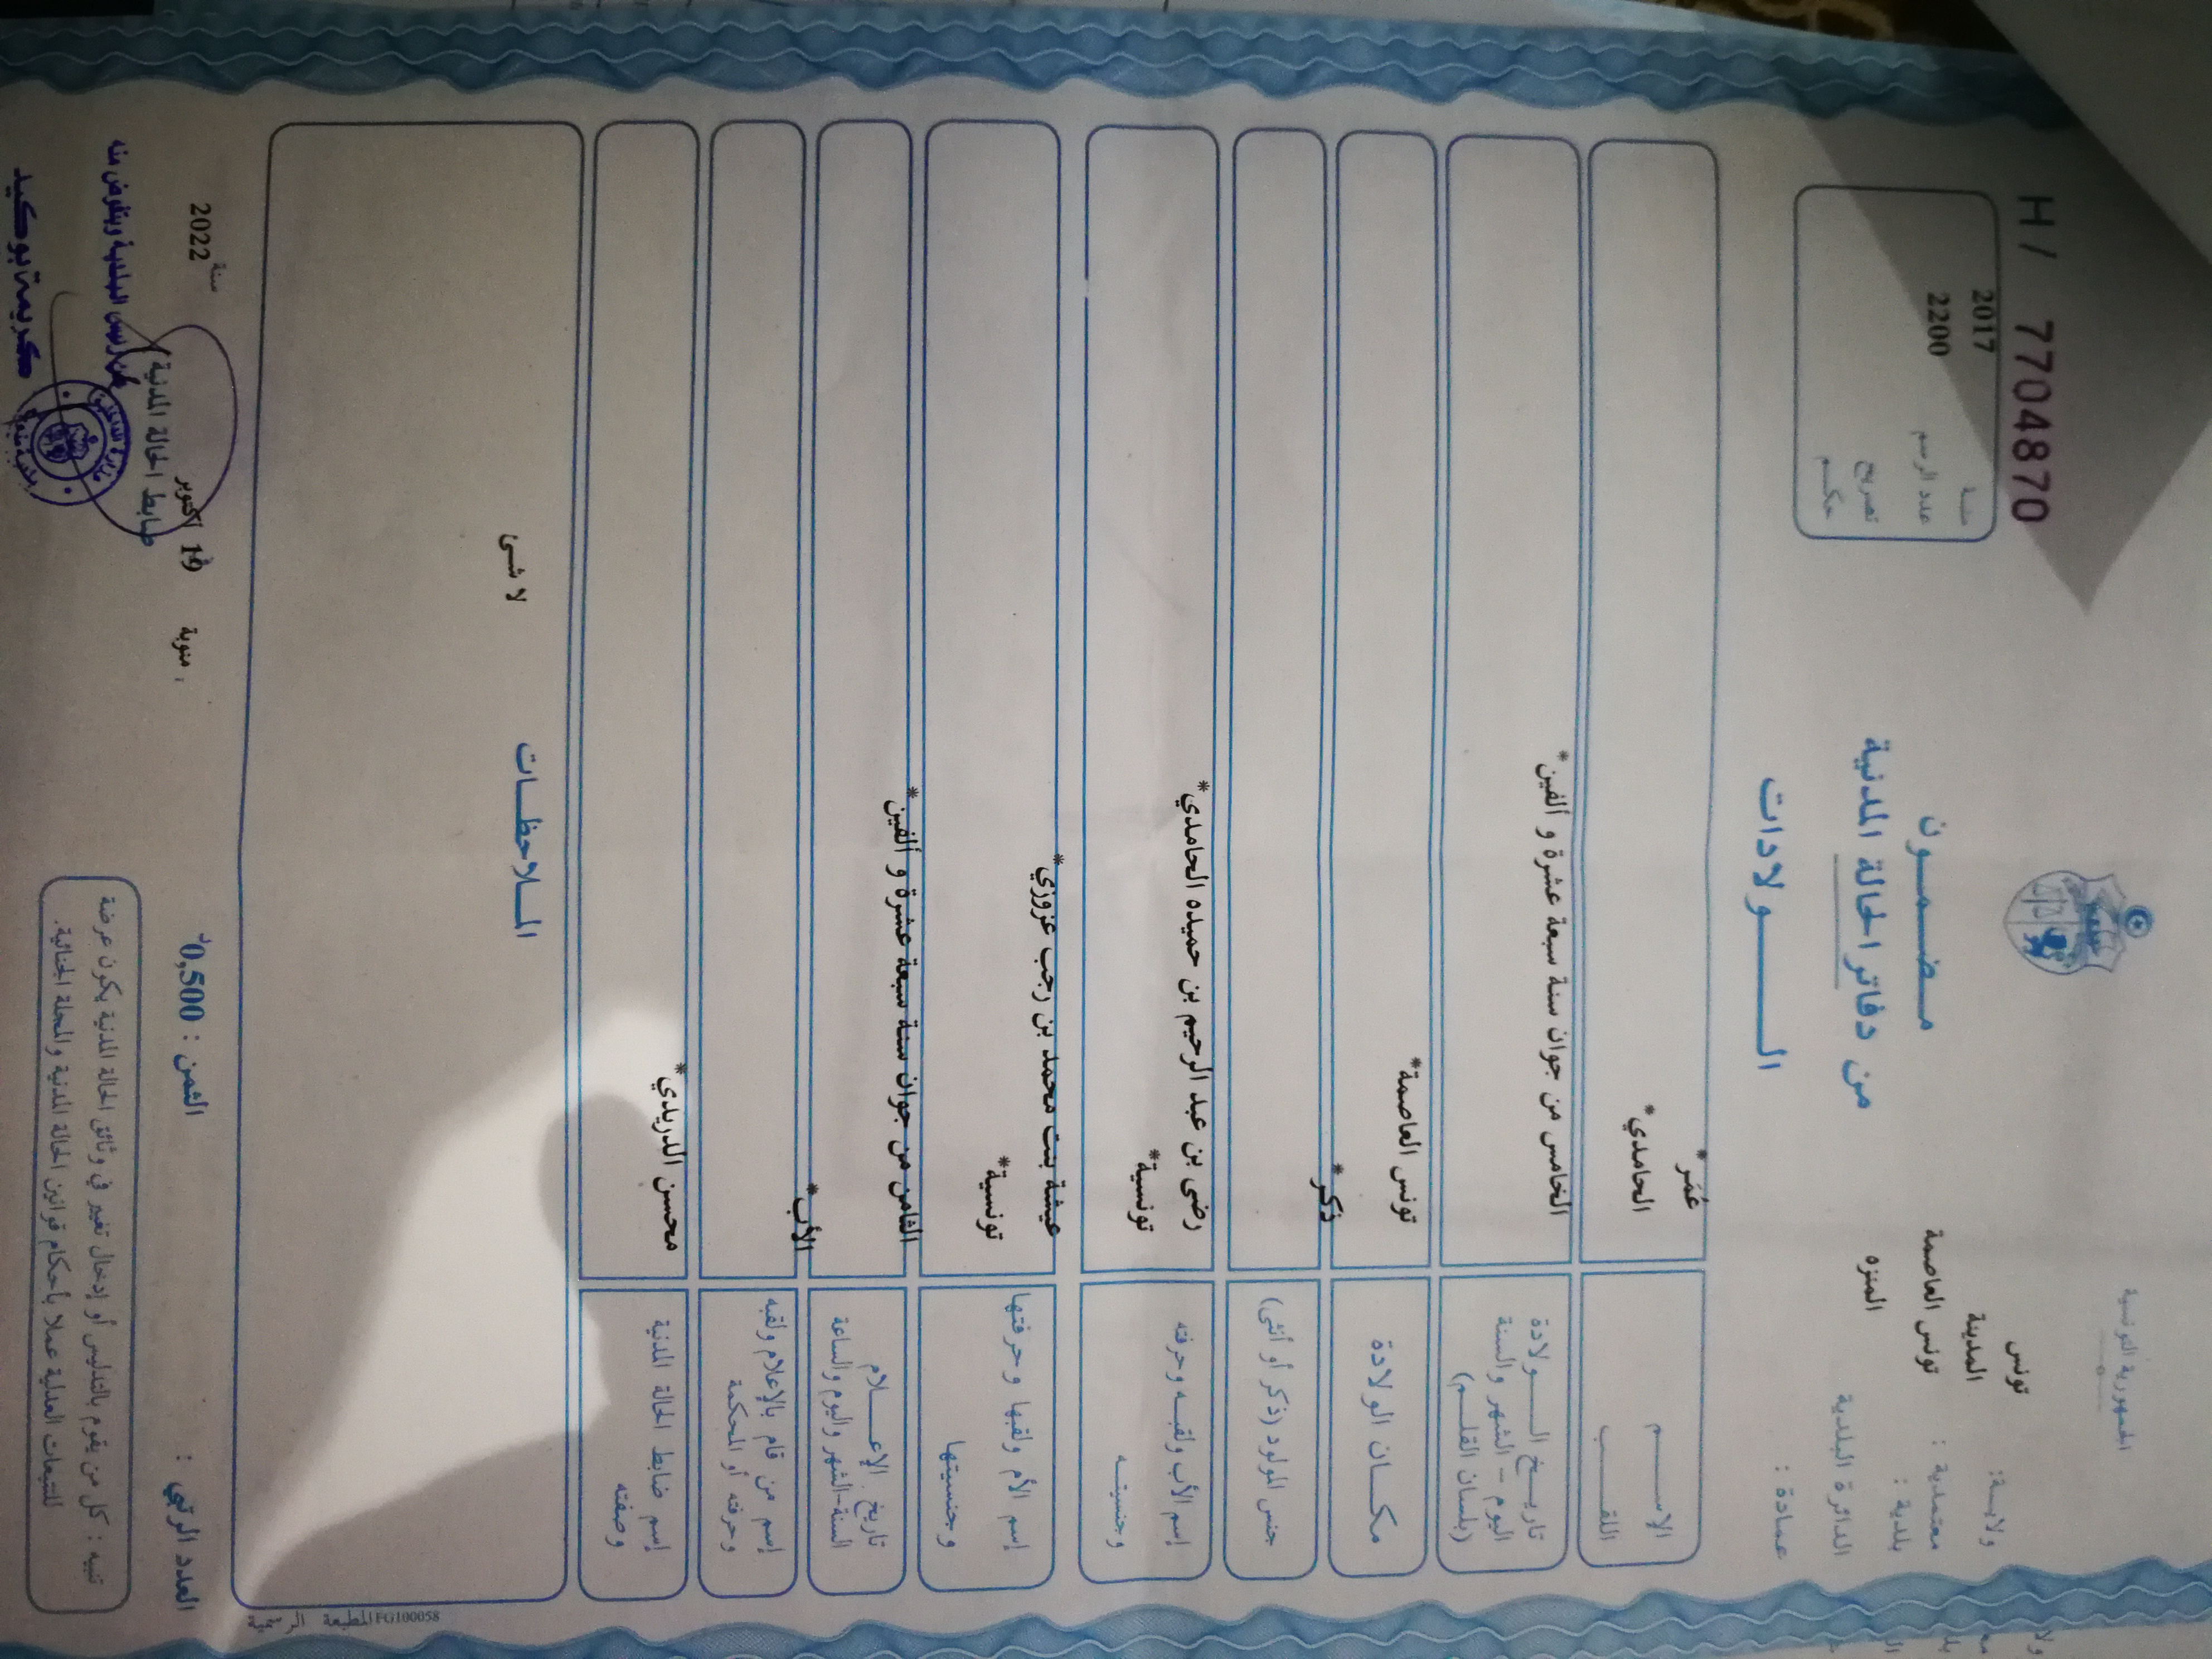 H / 7704870
الجمهورية التونسية
ولايــة: تونس
معتمدية : المدينة
بلدية : تونس العاصمة
الدائرة البلدية المنزه
عمادة :
سنــة 2017
عدد الرسم 2200
تصريح
حكــم
مــضــمــون
من دفاتر الحالة المدنية
الــــولادات
الإســـم عُمَر*
اللقـــب الحامدي*
تاريــخ الــــولادة
اليوم – الشهر والسنة
(بلسان القلــم)
الخامس من جوان سنة سبعة عشرة و ألفين*
مكــان الولادة تونس العاصمة*
جنس المولود (ذكر أو أنثى) ذكر*
إسم الأب ولقبــه وحرفته رضى بن عبد الرحيم بن حميده الحامدي*
وجنسيتــه تونسية*
إسم الأم ولقبها وحرفتها عيشة بنت محمد بن رجب عزوزي*
وجنسيتها تونسية*
تاريخ الإعــــلام
السنة-الشهر واليوم والساعة
الثامن من جوان سنة سبعة عشرة و ألفين*
إسم من قام بالإعلام ولقبه
وحرفته أو المحكمة
الأب*
إسم ضابط الحالة المدنية
وصفته
محسن الدريدي*
المــلاحظــات
لا شىء
المطبعة الرسمية FG100058
العدد الرتبي :
الثمن : 0,500د
منوبة ، في 19 أكتوبر سنة 2022
ضابط الحالة المدنية
عن رئيس البلدية وبتفويض منه
كريمة بوكيد
تنبيه : كل من يقوم بالتدليس أو إدخال تغيير في وثائق الحالة المدنية يكون عرضة
للتتبعات العدلية عملا بأحكام قوانين الحالة المدنية والمجلة الجنائية.